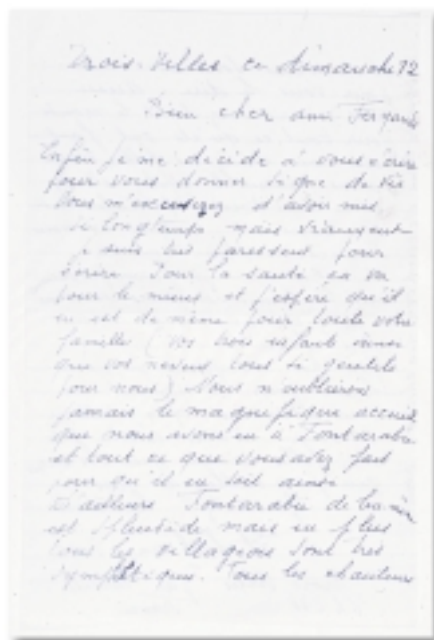 Trois-Villes ce dimanche 12
Bien cher ami
Enfin je me décide à vous écrire
pour vous donner signe de vie
Vous m'excuserez d'avoir mis
si longtemps mais vraiment
je suis très paresseux pour
écrire Pour la santé ça va
pour le mieux et j'espère qu'il
en est de même pour toute votre
famille (vos trois enfants ainsi
que vos neveux tous si gentils
pour nous) Nous n'oublierons
jamais le magnifique accueil
que nous avons eu à Fontarabie
et tout ce que vous avez fait
pour qu'il en soit ainsi
D'ailleurs Fontarabie
est splendide mais en plus
tous les villageois sont très
sympatiques. Tous les chanteurs